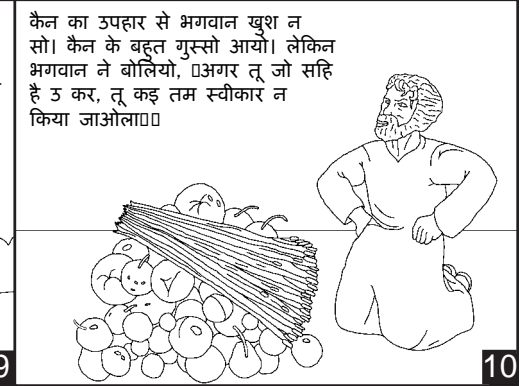 कैन का उपहार से भगवान खुश न
सो। कैन के बहुत गुस्सो आयो। लेकिन
भगवान ने बोलियो, ▯अगर तू जो सहि
है उ कर, तू कइ तम स्वीकार न
किया जाओला▯▯
9
10